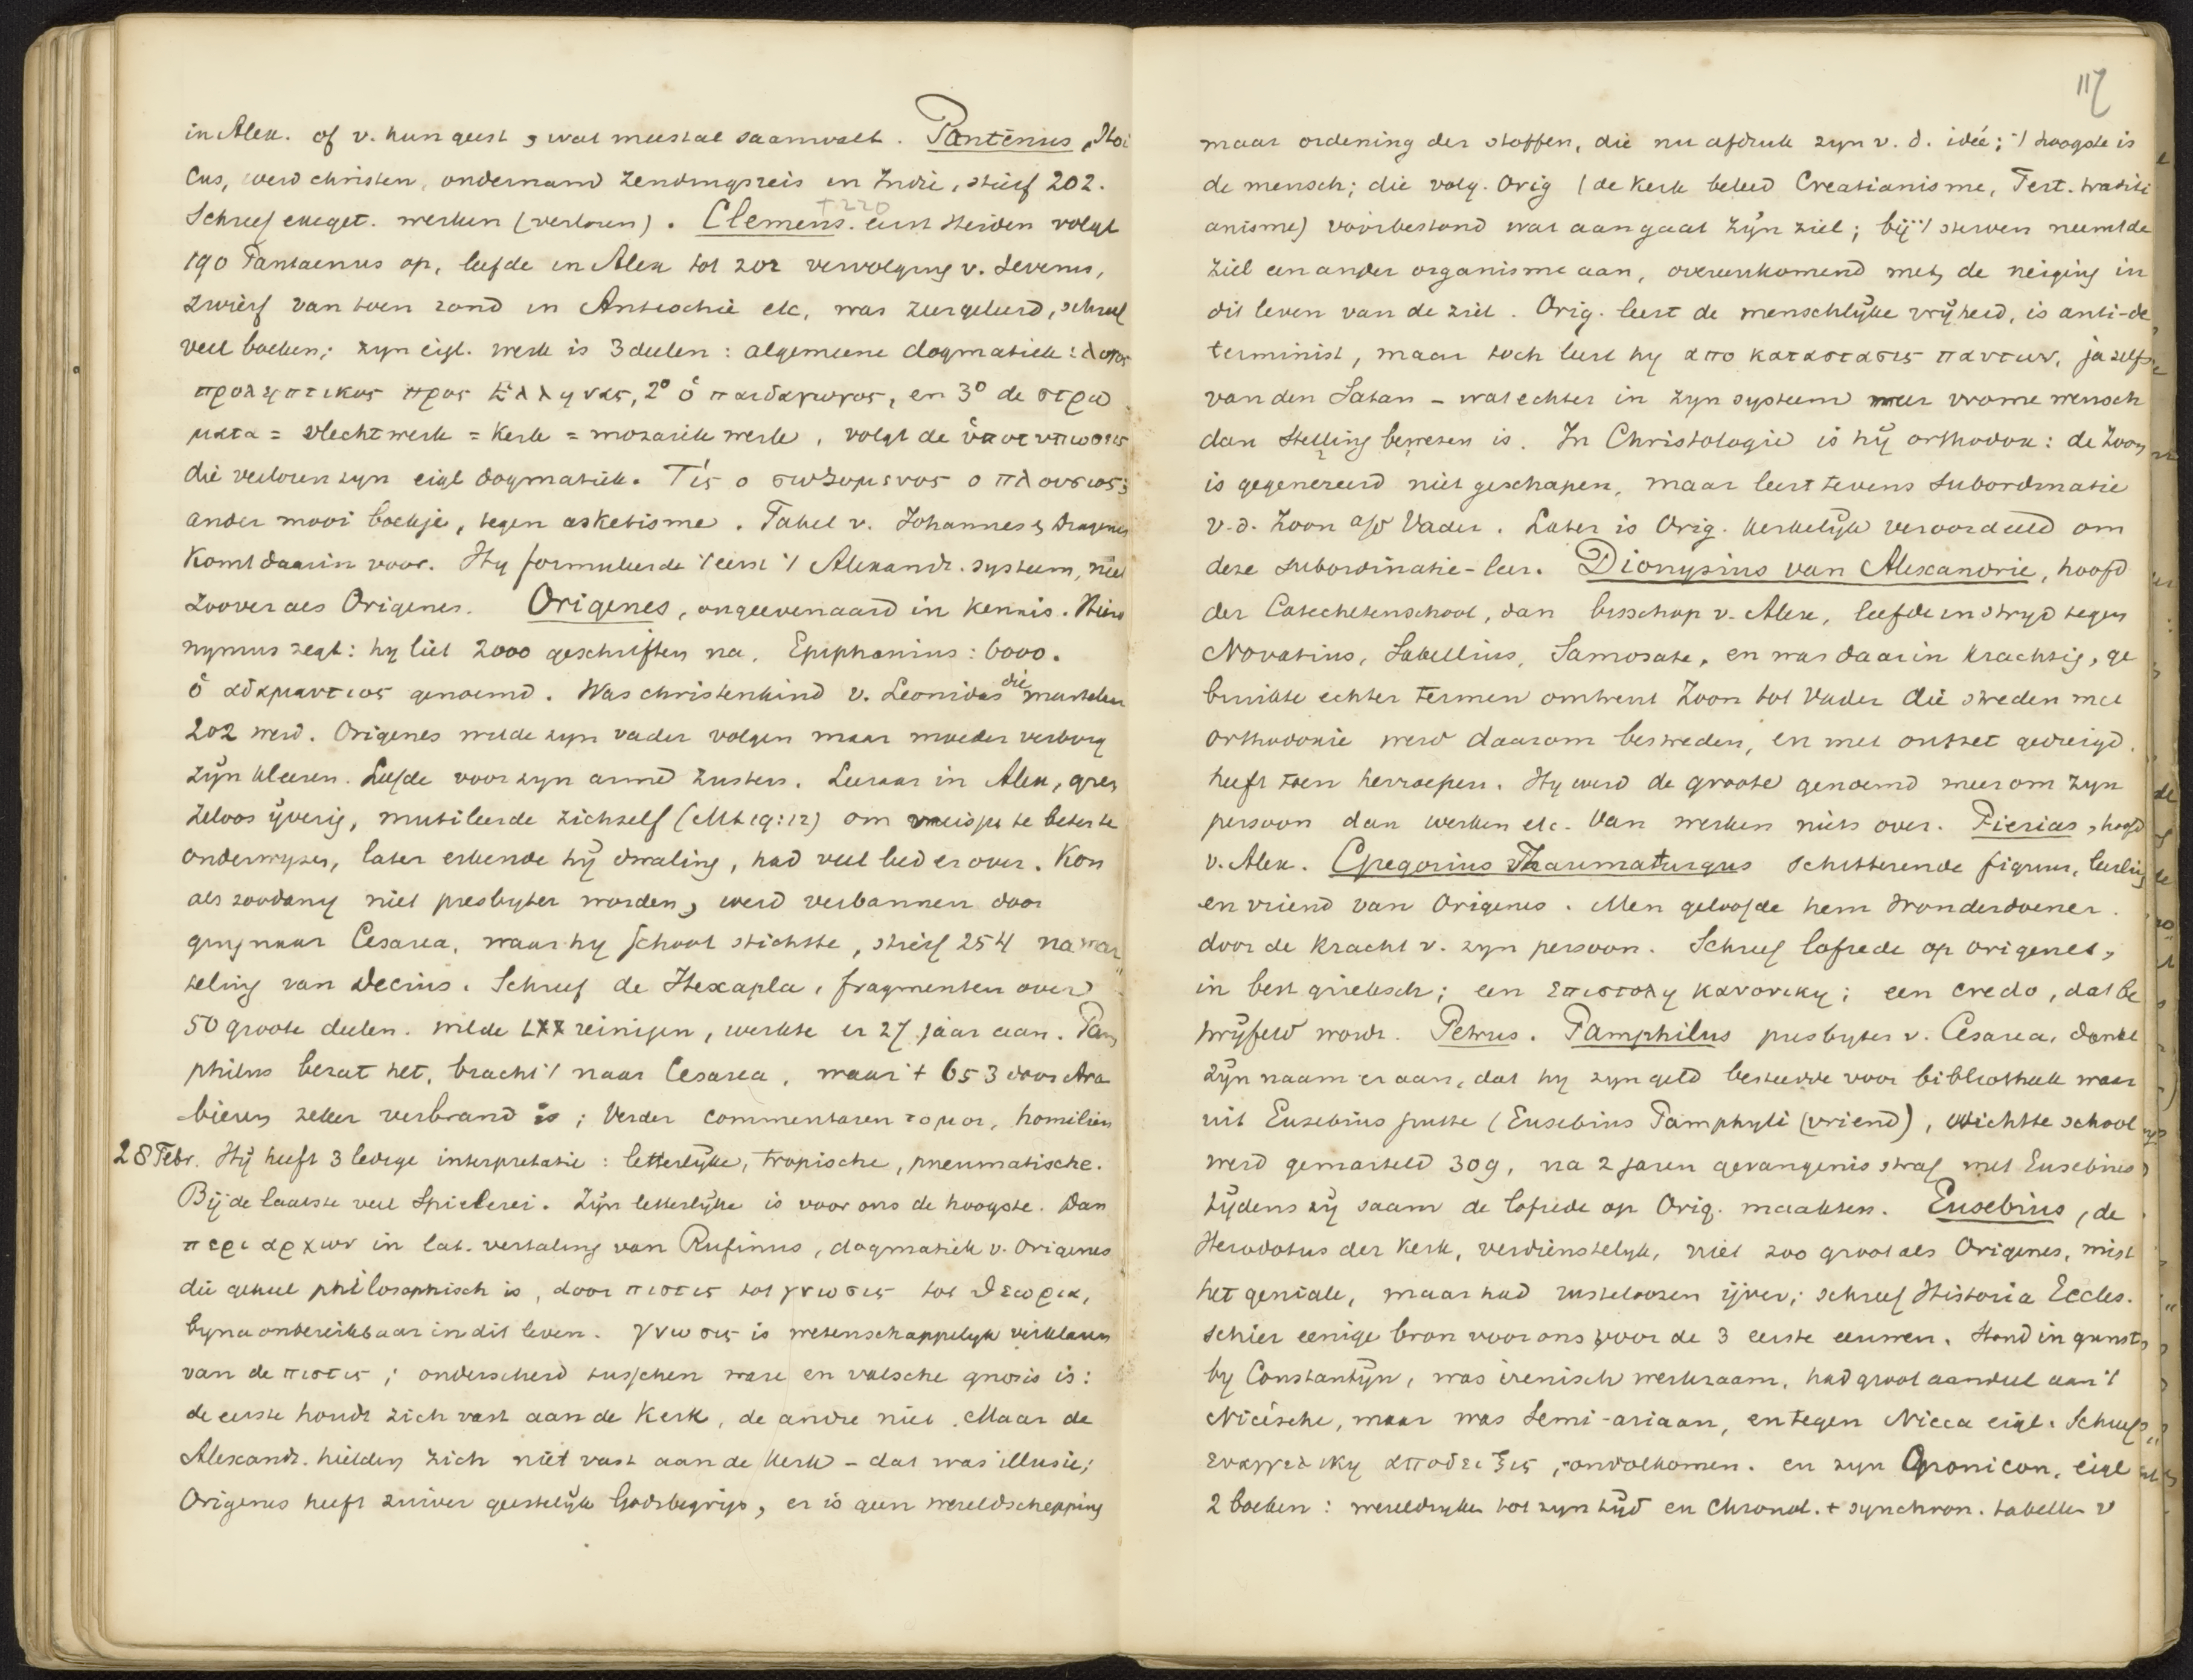 in Alex. of v. hun geest, wat meestal saamvalt. Pantēnus, Stoi
cus, werd christen, ondernam zendingsreis in Indië, stierf 202.
Schreef exeget. werken (verloren). Clemens. eerst Heiden volgt
† 220
190 Pantaenus op, leefde in Alex tot 202 vervolging v. Severus,
zwierf van toen rond in Antiochië etc, was zeer geleerd, schreef
veel boeken; zyn eigl. werk is 3 deelen: algemeene dogmatiek: λογος
προληπτικος προς Ἑλληνας, 2° ὁ παιδαγωγος, en 3° de στρω
ματα = vlechtwerk = Kerk = mozaiek werk, volgt de ὑποτυπωσεις
die verloren zyn eigl dogmatiek. Τίς ο σωζομενος ο πλουσιος;
ander mooi boekje, tegen asketisme. Fabel v. Johannes &
komt daarin voor. Hy formuleerde 't eerst 't Alexandr. systeem, niet
zoover als Origenes. Origenes, ongeevenaard in kennis. Hiero
nymus zegt: hy liet 2000 geschriften na, Epiphanius: 6000.
ὁ αδαμαντιος genoemd. Was christenkind v. Leonidas die martelaar
202 werd. Origenes wilde zyn vader volgen maar moeder verborg
zijn kleeren. Leefde voor zyn arme zusters. Leeraar in Alex, gren
zeloos ijverig, mutileerde zichzelf (Mt 19:12) om meisjes te beter te
onderwyzen, later erkende hij dwaling, had veel leed er over. Kon
als zoodanig niet presbyter worden, werd verbannen door
ging naar Cesarea, waar hy school stichtte, stierf 254 na mar
teling van Decius. Schreef de Hexapla, fragmenten over
50 groote deelen. wilde LXX reinigen, werkte er 27 jaar aan. Pam
philus bezat het, bracht 't naar Cesarea, waar 't ± 653 door Ara
bieren zeker verbrand is; Verder commentaren τομοι, homiliën
28 Febr. Hij heeft 3 ledige interpretatie: letterlyke, tropische, pneumatische.
Bij de laatste veel Spielerei. Zijn letterlijke is voor ons de hoogste. Dan
περι αρχων in lat. vertaling van Rufinus, dogmatiek v. Origenes
die geheel philosophisch is, door πιστις tot γνωσις tot θεωρια,
byna onbereikbaar in dit leven. γνωσις is wetenschappelyk verklaren
van de πιστις; onderscheid tusschen ware en valsche gnosis is:
de eerste houdt zich vast aan de Kerk, de andre niet. Maar de
Alexandr. hielden zich niet vast aan de Kerk - dat was illusie;
Origenes heeft zuiver geestelijk Godsbegrip, er is geen wereldschepping
117
maar ordening der stoffen, die nu afdruk zyn v. d. idée; 't hoogste is
de mensch; die volg. Orig (de Kerk beleed Creatianisme, Tert. traduci
anisme) voorbestond wat aangaat zijn ziel; bij 't sterven neemt de
ziel een ander organisme aan, overeenkomend met de neiging in
dit leven van de ziel. Orig. leert de menschlijke vrijheid, is anti-de
terminist, maar toch leert hy αποκαταστασις παντων, ja zelfs
van den Satan - wat echter in zyn systeem meer vrome wensch
dan stelling bewezen is. In Christologie is hij orthodox: de Zoon
is gegenereerd niet geschapen, maar leert tevens subordinatie
v. d. Zoon a/d Vader. Later is Orig. kerkelijk veroordeeld om
deze subordinatie-leer. Dionysius van Alexandrie, hoofd
der Catechetenschool, dan bisschop v. Alex, leefde in stryd tegen
Novatius, Sabellius, Samosate, en was daarin krachtig, ge
bruikte echter termen omtrent Zoon tot Vader die streden met
orthodoxie werd daarom bestreden, en met ontzet gedreigd.
heeft toen herroepen. Hy werd de groote genoemd meer om zyn
persoon dan werken etc. Van werken niets over. Pierias, hoofd
v. Alex. Gregorius Thaumaturgus schitterende figuur, leerling
en vriend van Origenes. Men geloofde hem Wonderdoener.
door de kracht v. zyn persoon. Schreef lofrede op origenes,
in best grieksch; een επιστολη κανονικη; een credo, dat be
twijfeld wordt. Petrus. Pamphilus presbyter v. Cesarea, dankt
zijn naam er aan, dat hy zyn geld besteedde voor bibliotheek waar
uit Eusebius putte (Eusebius Pamphyli (vriend), stichtte school
werd gemarteld 309, na 2 jaren gevangenisstraf met Eusebius
tijdens zij saam de lofrede op Orig. maakten. Eusebius, de
Herodotus der Kerk, verdienstelyk, niet zoo groot als Origenes, mist
het geniale, maar had rusteloozen ijver; schreef Historia Eccles.
schier eenige bron voor ons voor de 3 eerste eeuwen. Stond in gunst
by Constantijn, was irenisch werkzaam, had groot aandeel aan 't
Nicésche, maar was Semi-ariaan, en tegen Nicea eigl. Schreef
ευαγγελικη αποδειξις, onvolkomen. en zyn Cronicon, eigl
2 boeken: wereldryken tot zyn tijd en Chronol. + synchron. tabellen v